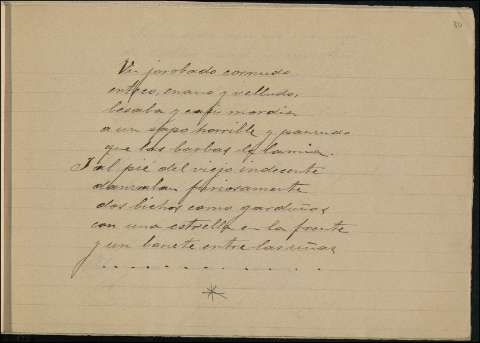 30
Un jorobado cornudo
enteco, enano y velludo,
besaba y casi mordia
a un sapo horrible y panzudo
que las barbas le lamia.
I al pié del viejo indecente
danzaban furiosamente
dos bichos como garduñas
con una estrella en la frente
y un bonete entre las uñas
. . . . . . . . . . .